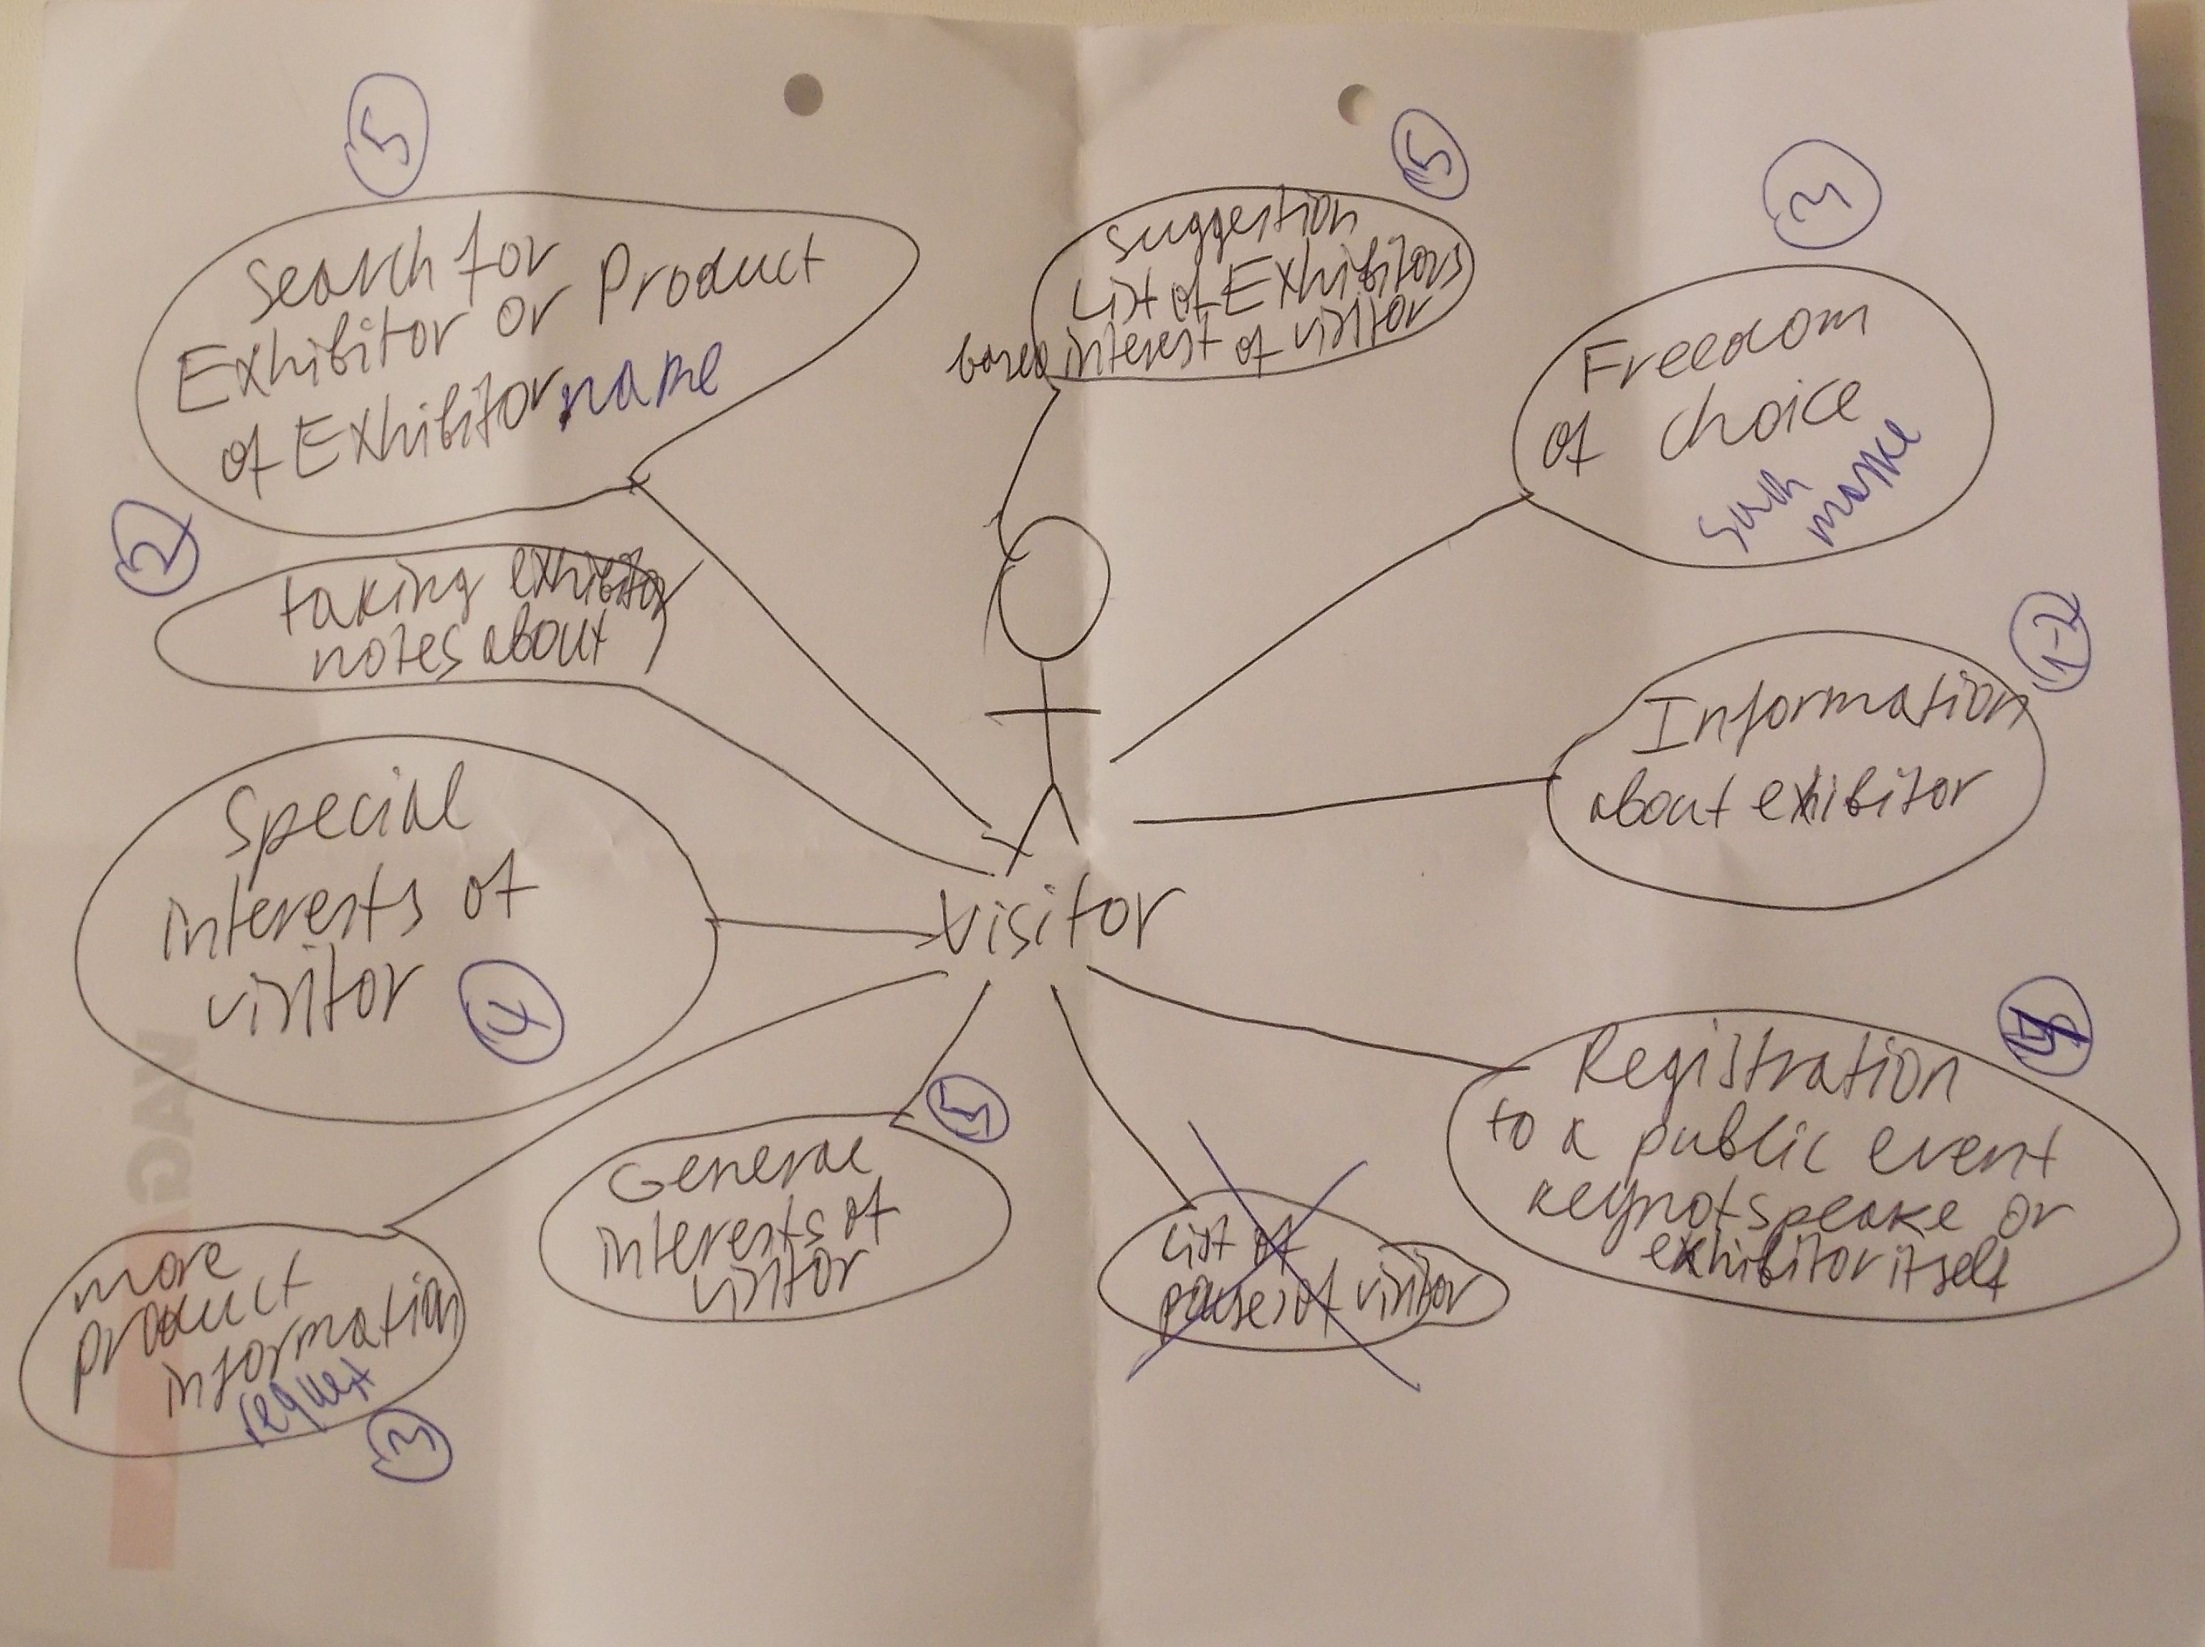 5
Search for
Exhibitor or Product
of Exhibitor name
5
suggestion
List of Exhibitors
based interest of visitor
3
Freedom
of choice
maske
2
taking exhibitor
notes about
1-2
Information
about exhibitor
Special
interests of
visitor
4
Visitor
Registration
to a public event
keynotspeake or
exhibitor itself
General
interests of
visitor
List of
pauses of visitor
more
product
information
request
3